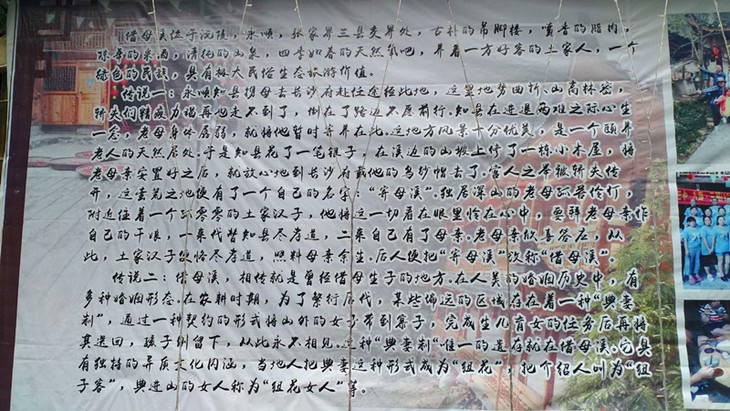 借母溪位于沅陵，永顺，张家界三县交界处，古朴的吊脚楼，喷香的腊肉，
陈香的米酒，清纯的山泉，四季如春的天然氧吧，养着一方好客的土家人，一个
绿色的民族，具有极大民俗生态旅游价值。
传说一：永顺知县携母去长沙府赴任途经此地，这里地势曲折，山高林密，
轿夫们精疲力竭再也走不到了，倒在了路边不愿前行.知县在进退两难之际心生
一念，老母身体孱弱，就将他暂时寄养在此.这地方风景十分优美，是一个颐养
老人的天然居处.于是知县花了一笔银子，在溪边的山坡上修了一栋小木屋，将
老母亲安置好之后，就放心地到长沙府戴他的乌纱帽去了.官人之爷被轿夫传
开，这蛮荒之地便有了一个自己的名字："寄母溪".独居深山的老母孤苦伶仃，
附近住着一个孤零零的土家汉子，他将这一切看在眼里怜在心中，要拜老母亲作
自己的干娘，一来代替知县尽孝道，二来自己有了母亲.老母亲欣喜答应，从
此，土家汉子便恪尽孝道，照料母亲余生.后人便把"寄母溪"改称"借母溪".
传说二：借母溪，相传就是曾经借母生子的地方.在人类的婚姻历史中，有
多种婚姻形态.在农耕时期，为了繁衍后代，某些偏远的区域存在着一种"典妻
制"，通过一种契约的形式将山外的女子带到寨子，完成生儿育女的任务后再将
其送回，孩子则留下，从此永不相见.这种"典妻制"唯一的遗存就在借母溪.它具
有独特的异质文化内涵，当地人把典妻这种形式成为"组花"，把介绍人叫为"组
子客"，典进山的女人称为"组花女人"等。